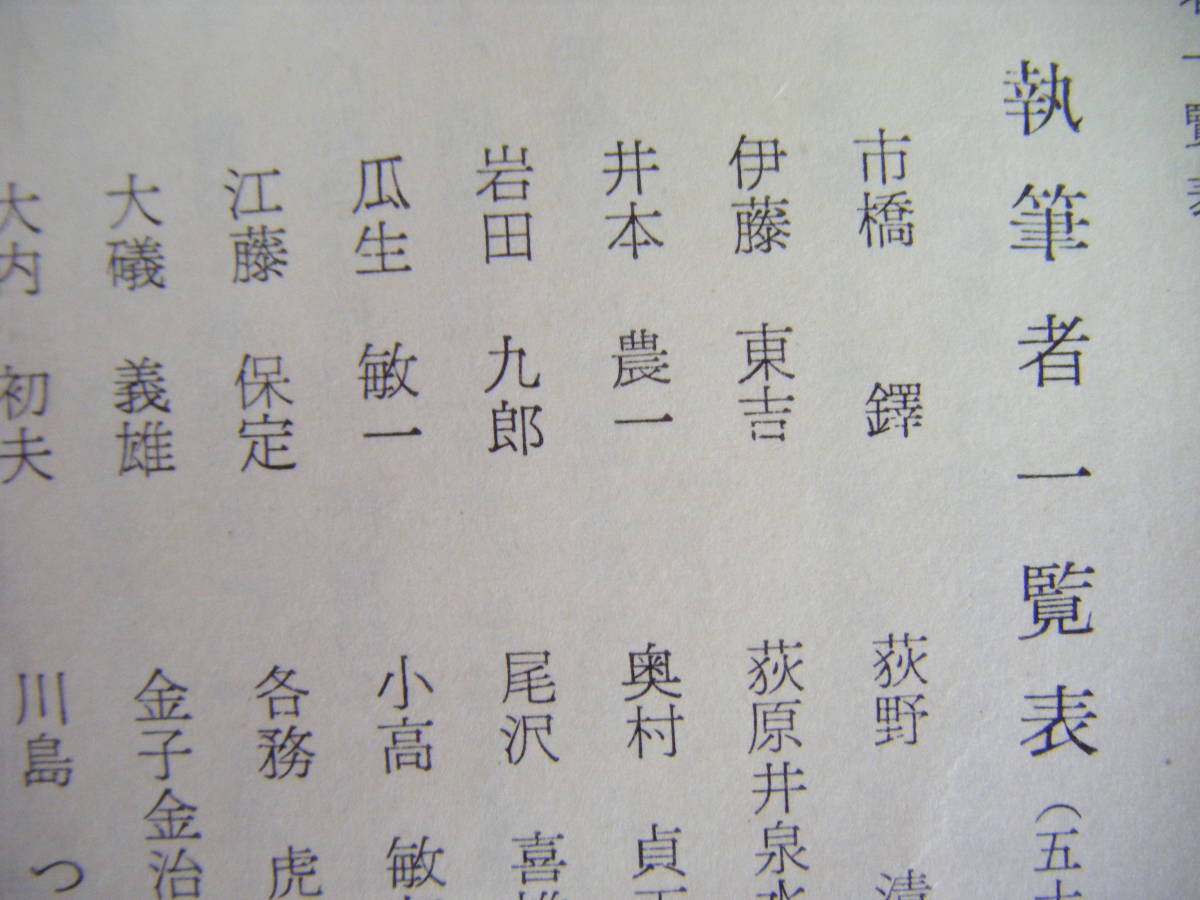 一覧表
執筆者一覧表（五十
市橋 鐸
伊藤 東吉
井本 農一
岩田 九郎
瓜生 敏一
江藤 保定
大礒 義雄
大内 初夫
荻野 清
荻原井泉水
奥村 貞
尾沢 喜
小高 敏
各務 虎
金子金治
川島 つ